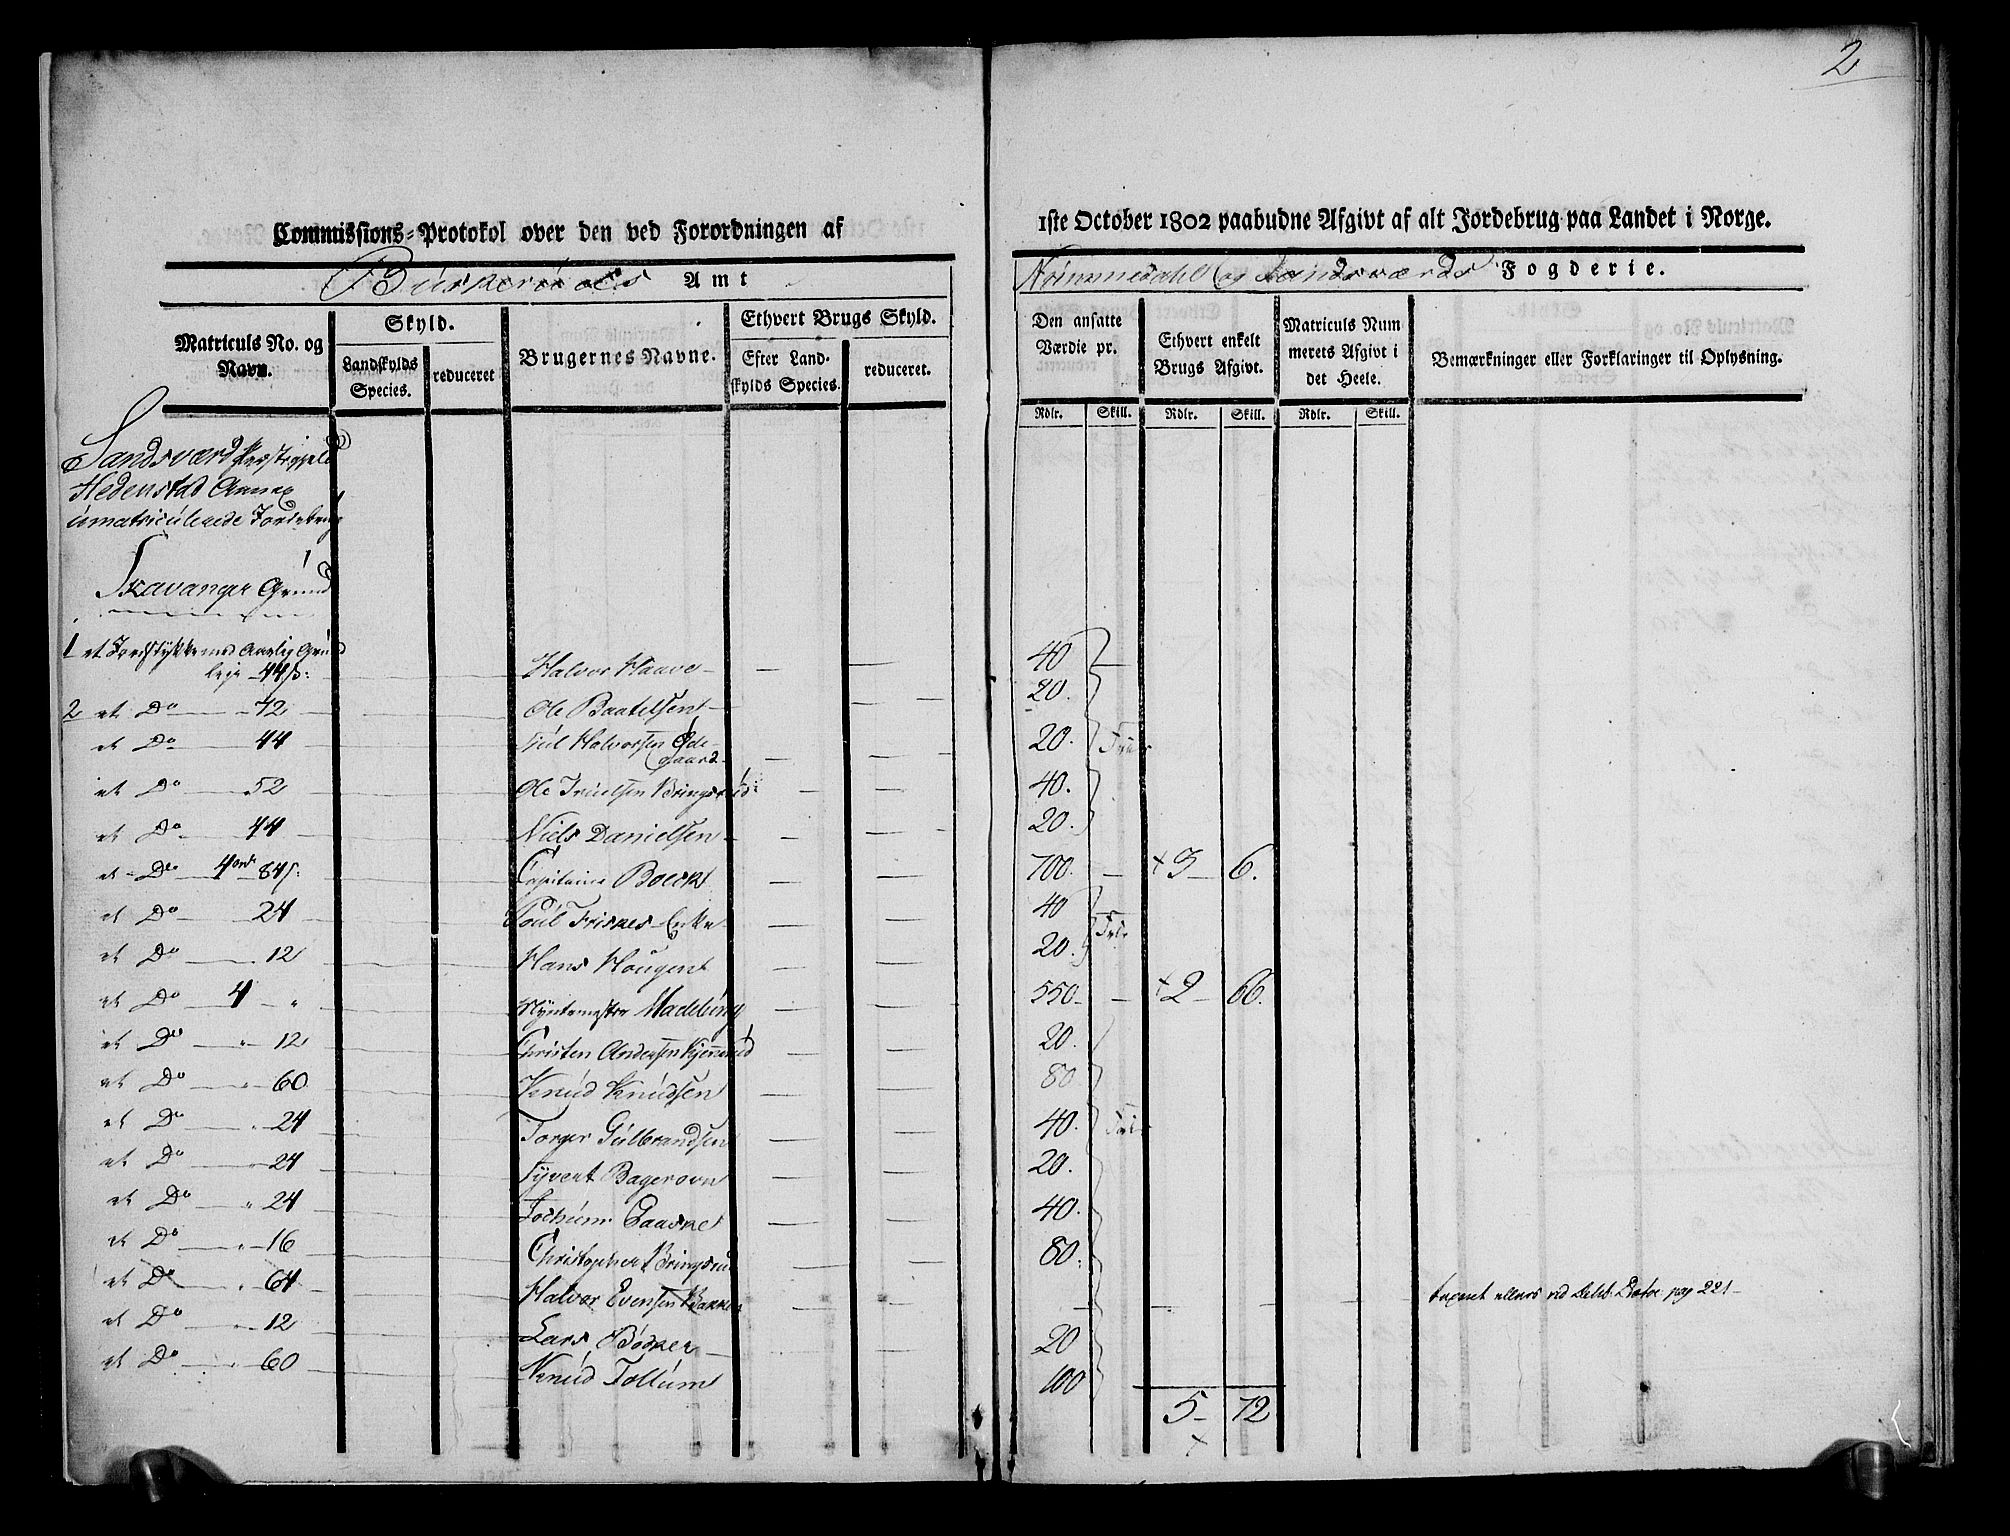 2
Commissions-Protokol over den ved Forordningen af
1ste October 1802 paabudne Afgivt af alt Jordebrug paa Landet i Norge.
Buskeruds Amt
Nummedahl og Sandsværds Fogderie.
Matriculs No. og Navn.
Skyld.
Landskylds Species.
reduceret
Brugernes Navne.
Ethvert Brugs Skyld.
Efter Landskylds Species.
reduceret.
Den ansatte Værdie pr.
Ethvert enkelt Brugs Afgivt.
Matriculs Nummerets Afgivt i det Heele.
Bemærkninger eller Forklaringer til Oplysning.
Rdlr. Skill. Rdlr. Skill. Rdlr. Skill.
Sandsværd Præstegield
Hedenstad Annex
umatriculerede Jordebrug
Skavanger Grund
1 et Jordstykke med Aarlig Grund
leje - 44 s: Halvor Haave - 40 -
2 et Do - 72 Ole Baatelsen - 20.
et Do 44 Halvorsen Ødegaard - 20.
et Do 52 Ole Truelsen Bringsrud 40.
et Do 44 Niels Danielsen - 20.
et Do 4 ort 84 s: Capitaine Boeck 700. - + 3 - 6.
et Do 24 Poul Friskes Enke 40
et Do 12 Hans Hougen 20.
et Do 4 - " Madelung 550 - + 2 - 66.
et Do " 12 Christen Andersen 20.
et Do " 60 Knud Knudsen 80
et Do " 24 Torger Gulbrandsen 40.
et Do " 24 Syvert Bagerovn 20.
et Do " 24 Jochum 40.
et Do " 16 Christopher Bringsrud 80.
et Do " 64 Halvor Evensen Bakken - - - - - taxeret ellers ved pag 221 -
et Do " 12 Lars Bödker - 20
et Do " 60 Knud Tollum 100
5 - 72
+